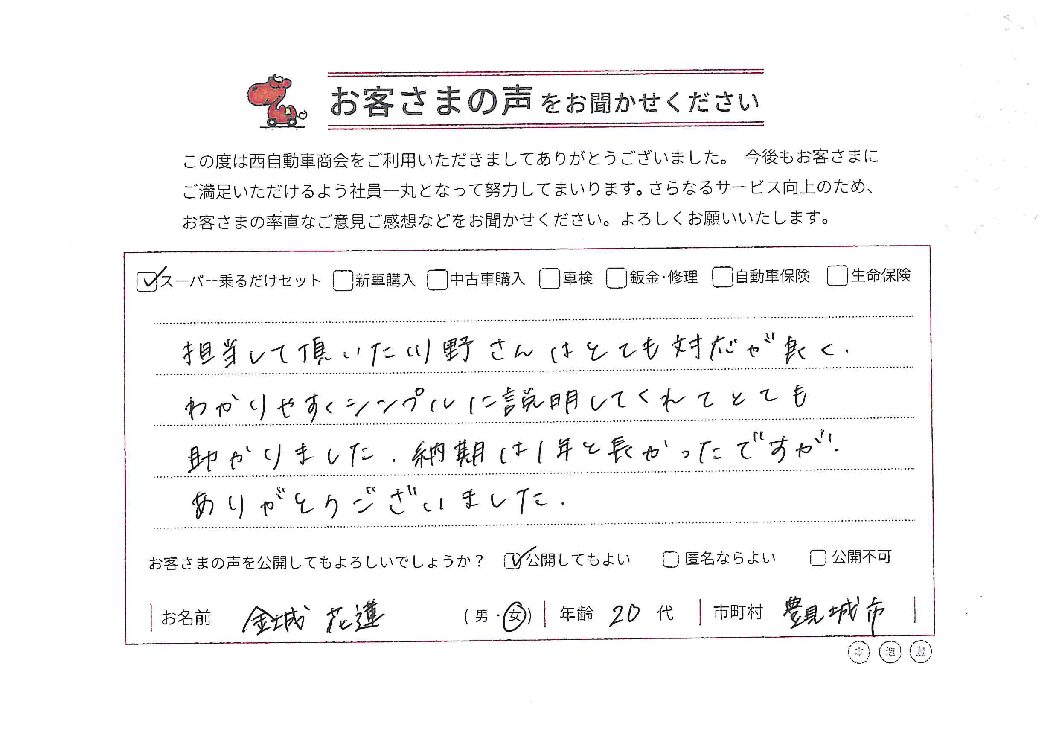 お客さまの声をお聞かせください
この度は西自動車商会をご利用いただきましてありがとうございました。 今後もお客さまに
ご満足いただけるよう社員一丸となって努力してまいります。さらなるサービス向上のため、
お客さまの率直なご意見ご感想などをお聞かせください。よろしくお願いいたします。
スーパー乗るだけセット 新車購入 中古車購入 車検 鈑金・修理 自動車保険 生命保険
担当して頂いた川野さんはとても対応が良く、
わかりやすくシンプルに説明してくれてとても
助かりました。納期は1年と長かったですが、
ありがとうございました。
お客さまの声を公開してもよろしいでしょうか? 公開してもよい 匿名ならよい 公開不可
お名前 金城 花蓮 (男・女) 年齢 20 代 市町村 豊見城市